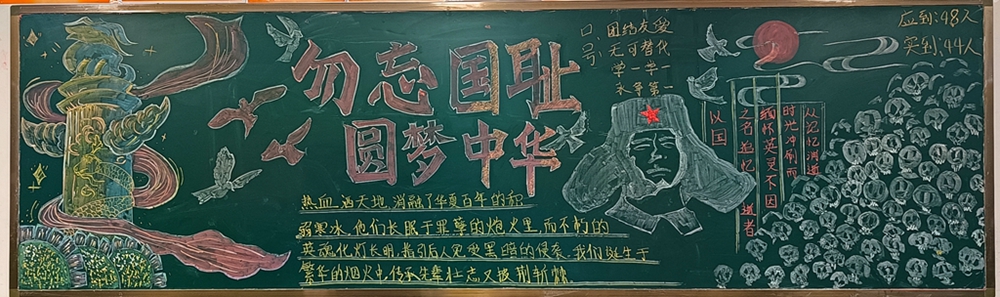 勿忘国耻
圆梦中华
口号:
团结友爱
无可替代
学一学一
永争第一
应到:48人
实到:44人
以国
之名追忆 逝者
缅怀英灵不因
时光冲倒而
从记忆消逝
热血洒天地,消融了华夏百年的积
弱寒冰,他们长眠于罪孽的炮火里,而不朽的
英魂化灯长明,指引后人免受黑暗的侵袭,我们诞生于
繁华的烟火中,传承先辈壮志又披荆斩棘